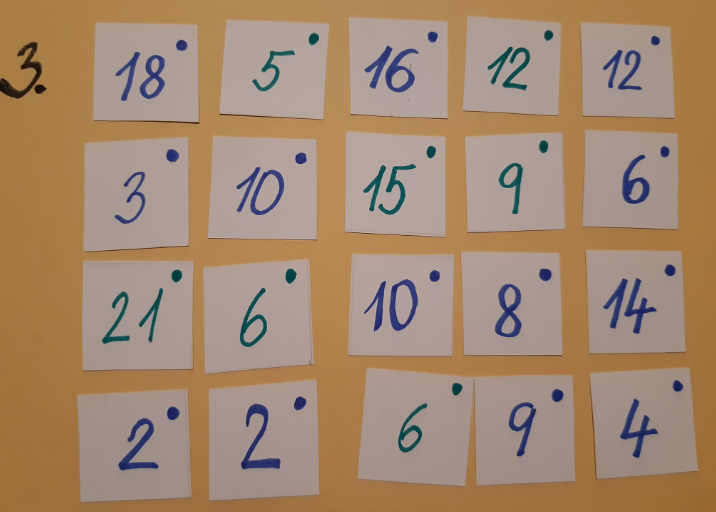 3. 18 5 16 12 12
3 10 15 9 6
21 6 10 8 14
2 2 6 9 4